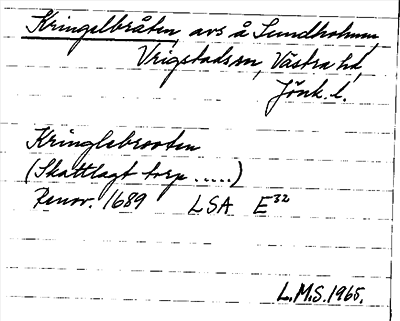 Kringelbråten, avs å Lundholmen,
Vrigstads sn, Västra hd,
Jönk. l.
Kringlebrooten
(Skattlagt torp .....)
Renov. 1689 LSA E³²
L.M.S. 1965.